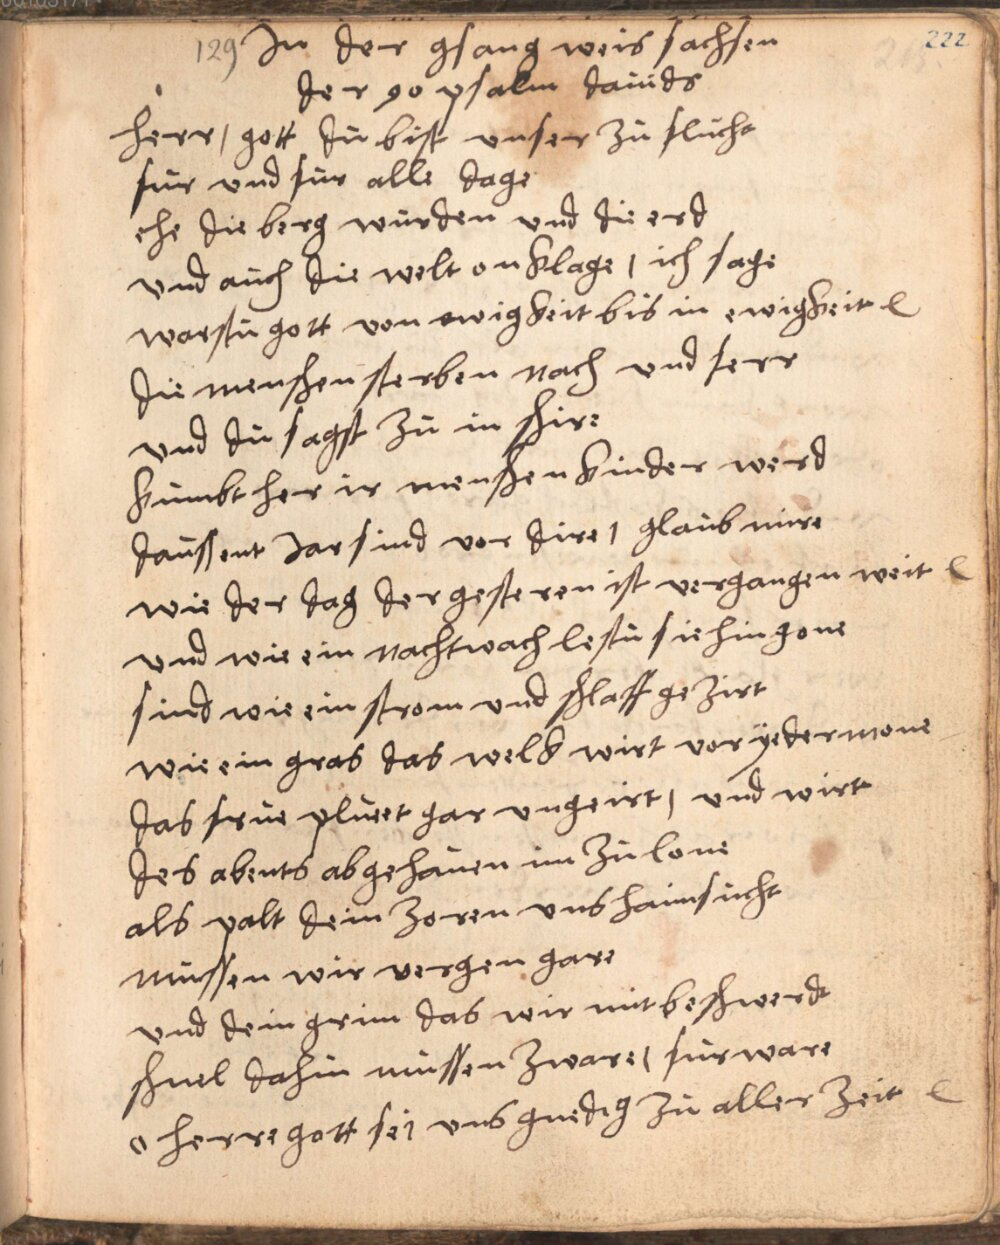 129 In der gsang weis sachsen 222
der 90 psalm dauids
herr / gott du bist unser zu flucht
fur und fur alle dage
ehe die berg wurden und die erd
und auch die welt on klage / ich sage
warstu gott von ewigkeit bis in ewigkeit
die menschen sterben nach und ferr
und du sagst zu in schire
kumbt her ir menschen kinder werd
daussent Jar sind vor dire / glaub mire
wie der dag der gesteren ist vergangen weit
und wie ein nachtwach lestu sie hin gone
sind wie ein strom und schlaff gezirt
wie ein gras das welk wirt vor yedermone
das frue plüet gar ungeirt / und wirt
des abents abgehauen im zu lone
als palt dein zoren uns haimsucht
mussen wir vergen gare
und dein grim das wir mit beschwerdt
schnel dahin mussen zware / furware
o herre gott sei uns gnedig zu aller zeit